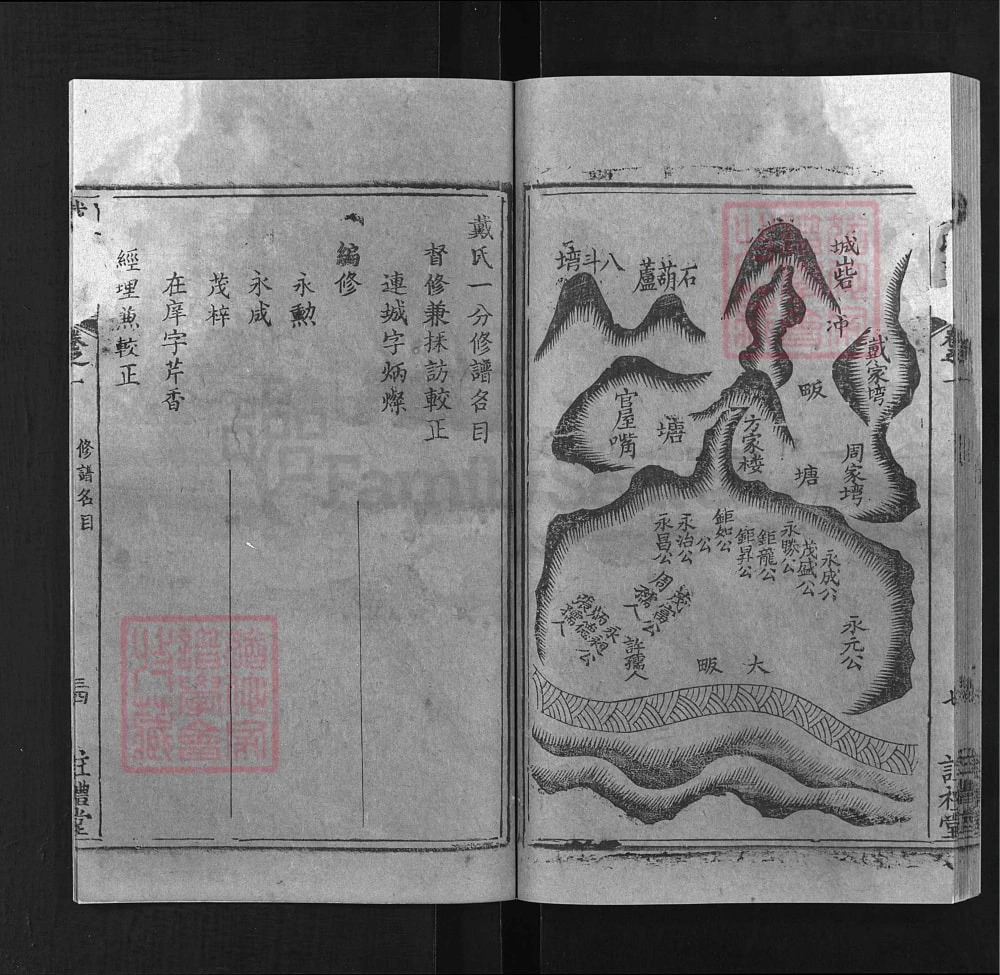 城砦
冲
石葫蘆
八斗塆
戴家塆
畈
官屋嘴
塘
方家楼
塘
周家塆
永成公
茂盛公
永勝公
鉅龍公
鉅昇公
鉅如公
公
永治公
永昌公
永元公
茂富公
周孺人
永昶公
炳德
張孺人
許孺人
大畈
戴氏一分修譜名目
督修兼採訪較正
連城字炳燦
編修
永勲
永成
茂梓
在庠字芹香
經理兼較正
卷之一
修譜名目
三四
註禮堂